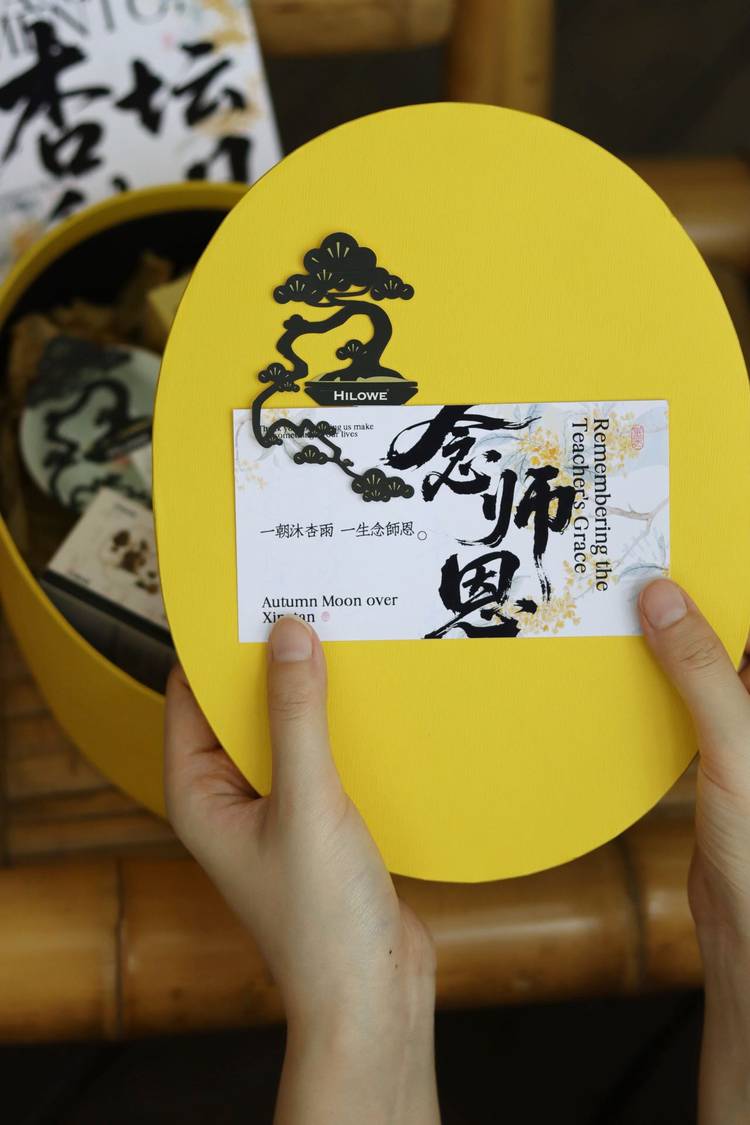 MENTO
杏坛
HILOWE
us make
our lives
念师恩
Remembering the
Teacher's Grace
一朝沐杏雨 一生念師恩。
Autumn Moon over